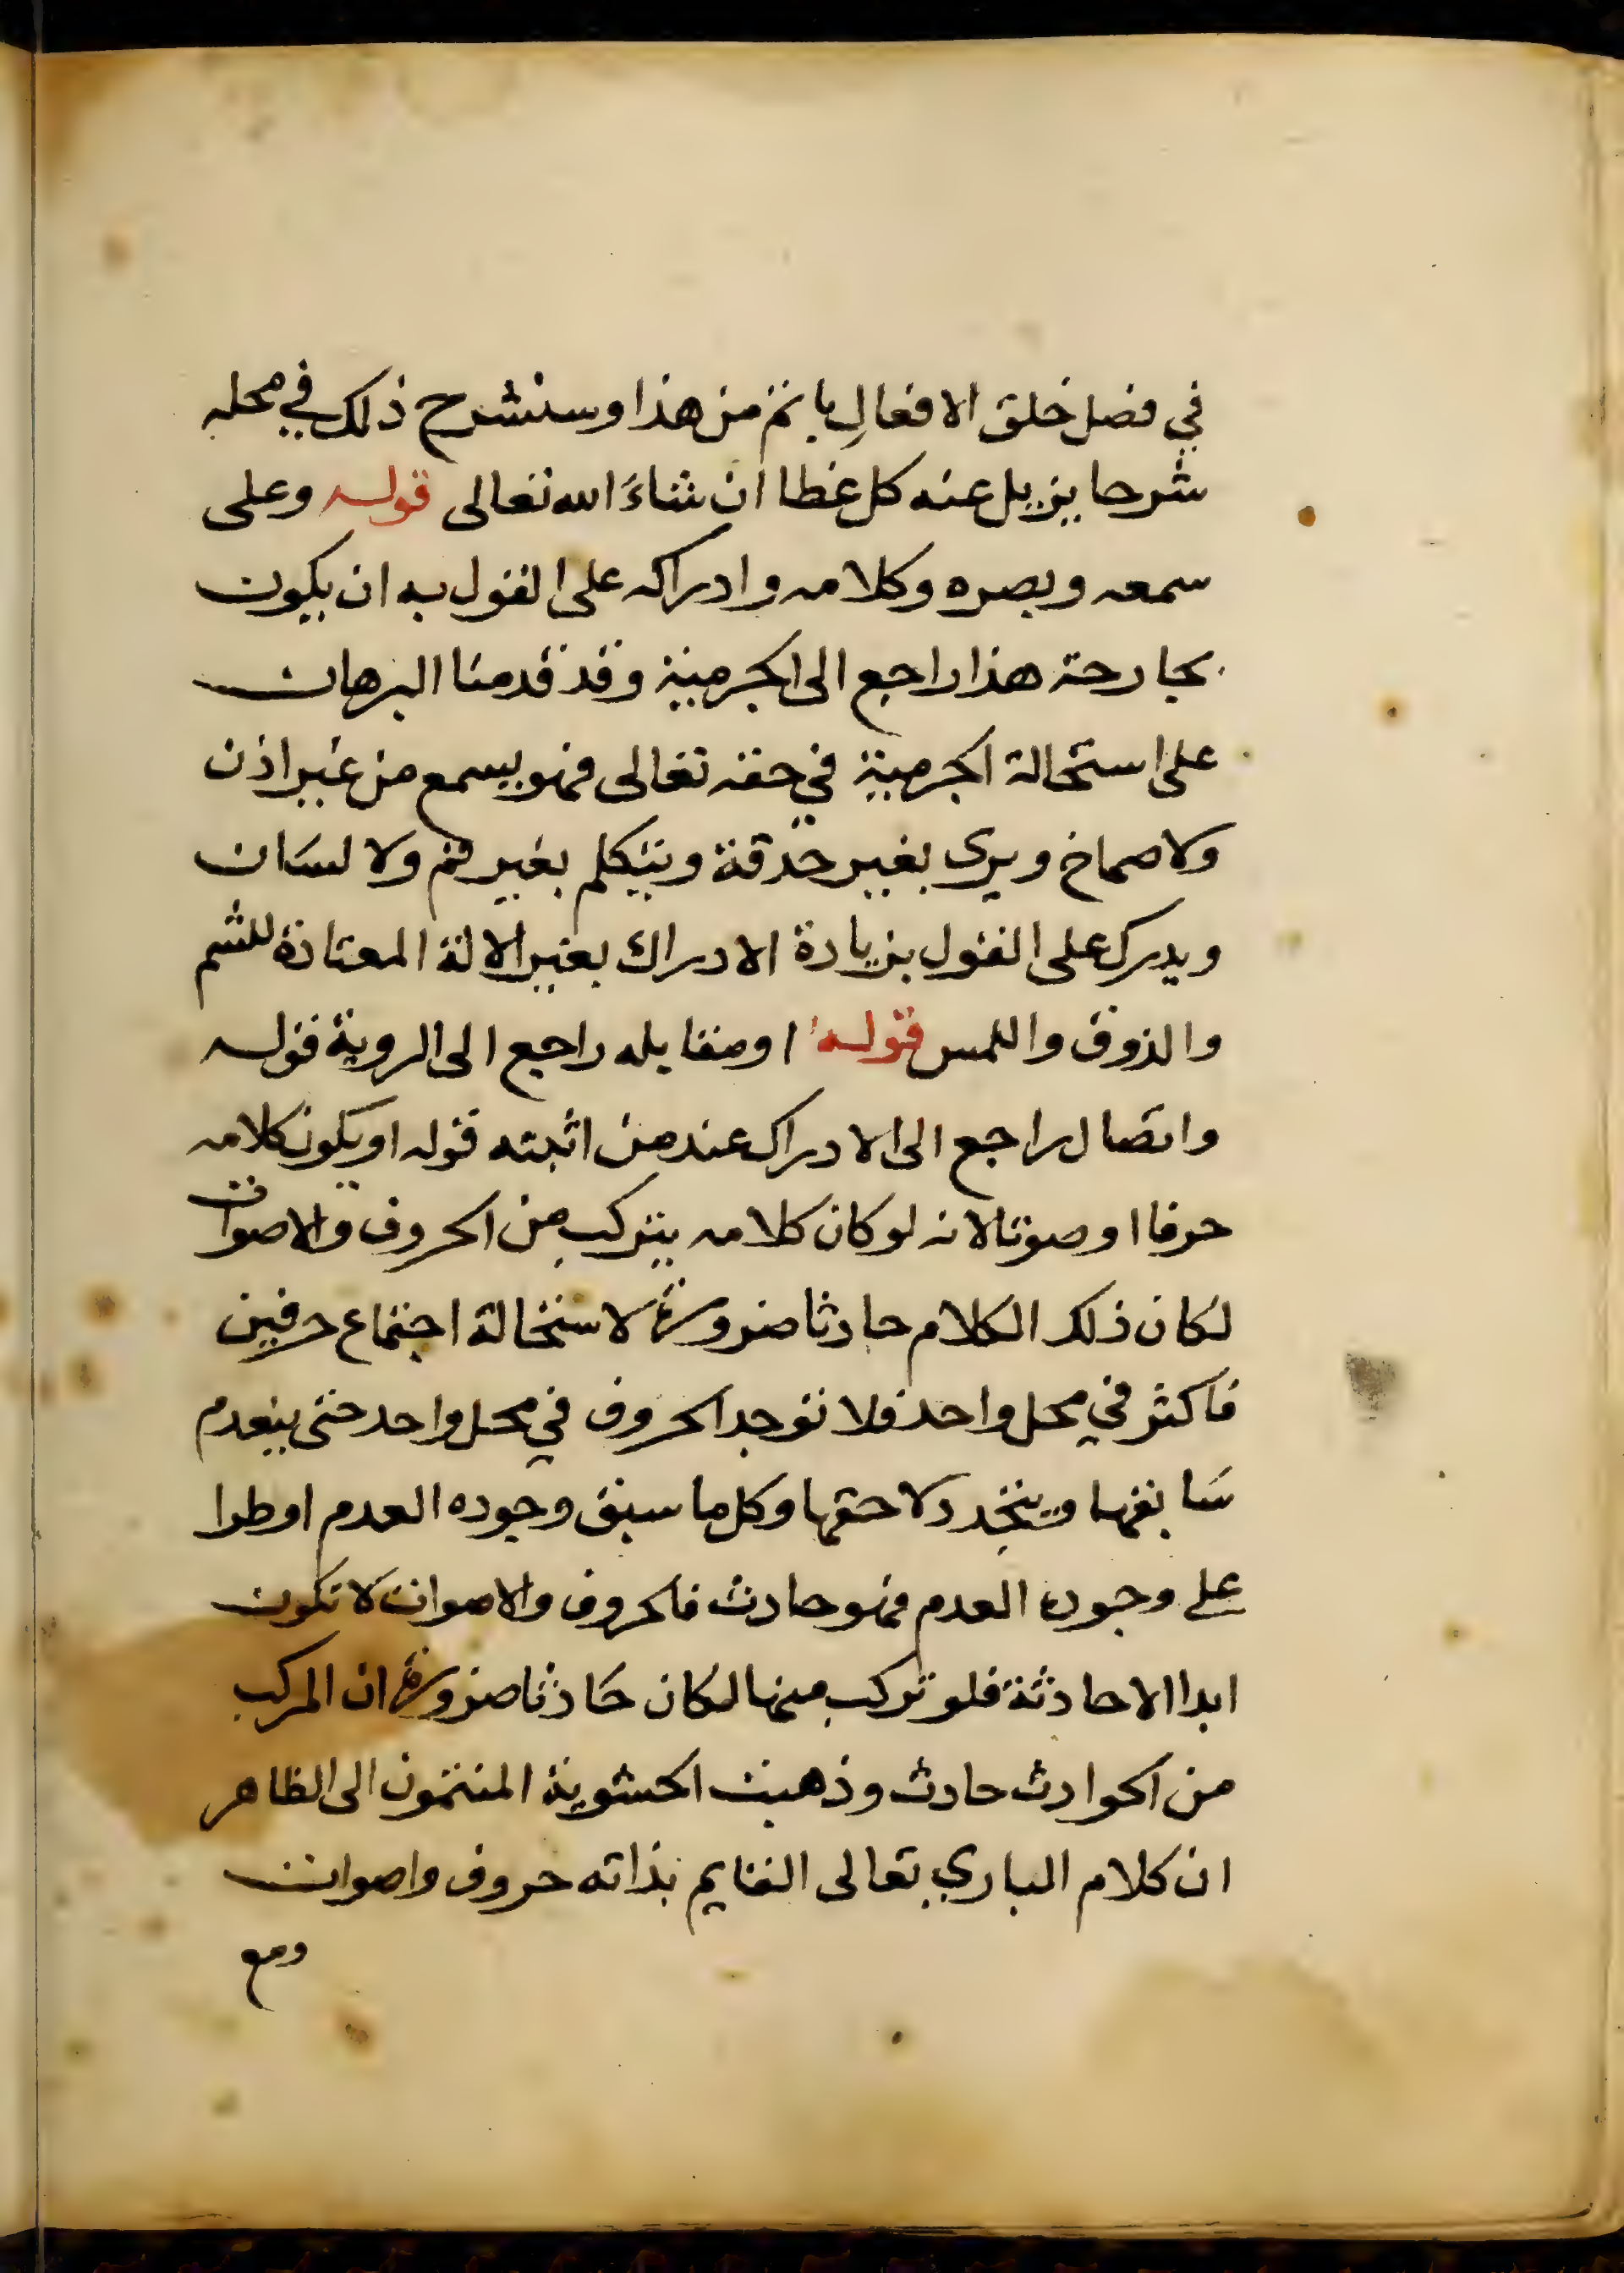 في فصل خلق الافعال باتم من هذا وسنشرح ذلك في محله
شرحا يزيل عنه كل غطا ان شاء الله تعالى قوله وعلى
سمعه وبصره وكلامه وادراكه على القول به ان يكون
بجارحة هذا راجع الى الجرمية وقد قدمنا البرهان
على استحالة الجرمية في حقه تعالى فهو يسمع من غير اذن
ولا صماخ ويرى بغير حدقة ويتكلم بغير فم ولا لسان
ويدرك على القول بزيادة الادراك بغير الالة المعتادة للشم
والذوق واللمس قوله او مقابله راجع الى الروية قوله
واتصال راجع الى الادراك عند من اثبته قوله او يكون كلامه
حرفا او صوتا لانه لو كان كلامه يتركب من الحروف والاصوات
لكان ذلك الكلام حادثا ضرورة لاستحالة اجتماع حرفين
فاكثر في محل واحد فلا توجد الحروف في محل واحد حتى ينعدم
سابقها ويتجدد لاحقها وكل ما سبق وجوده العدم او طرا
على وجوده العدم فهو حادث فالحروف والاصوات لا تكون
ابدا الا حادثة فلو تركب منها لكان حادثا ضرورة ان المركب
من الحوادث حادث وذهبت الحشوية المنتمون الى الظاهر
ان كلام الباري تعالى القايم بذاته حروف واصوات
ومع